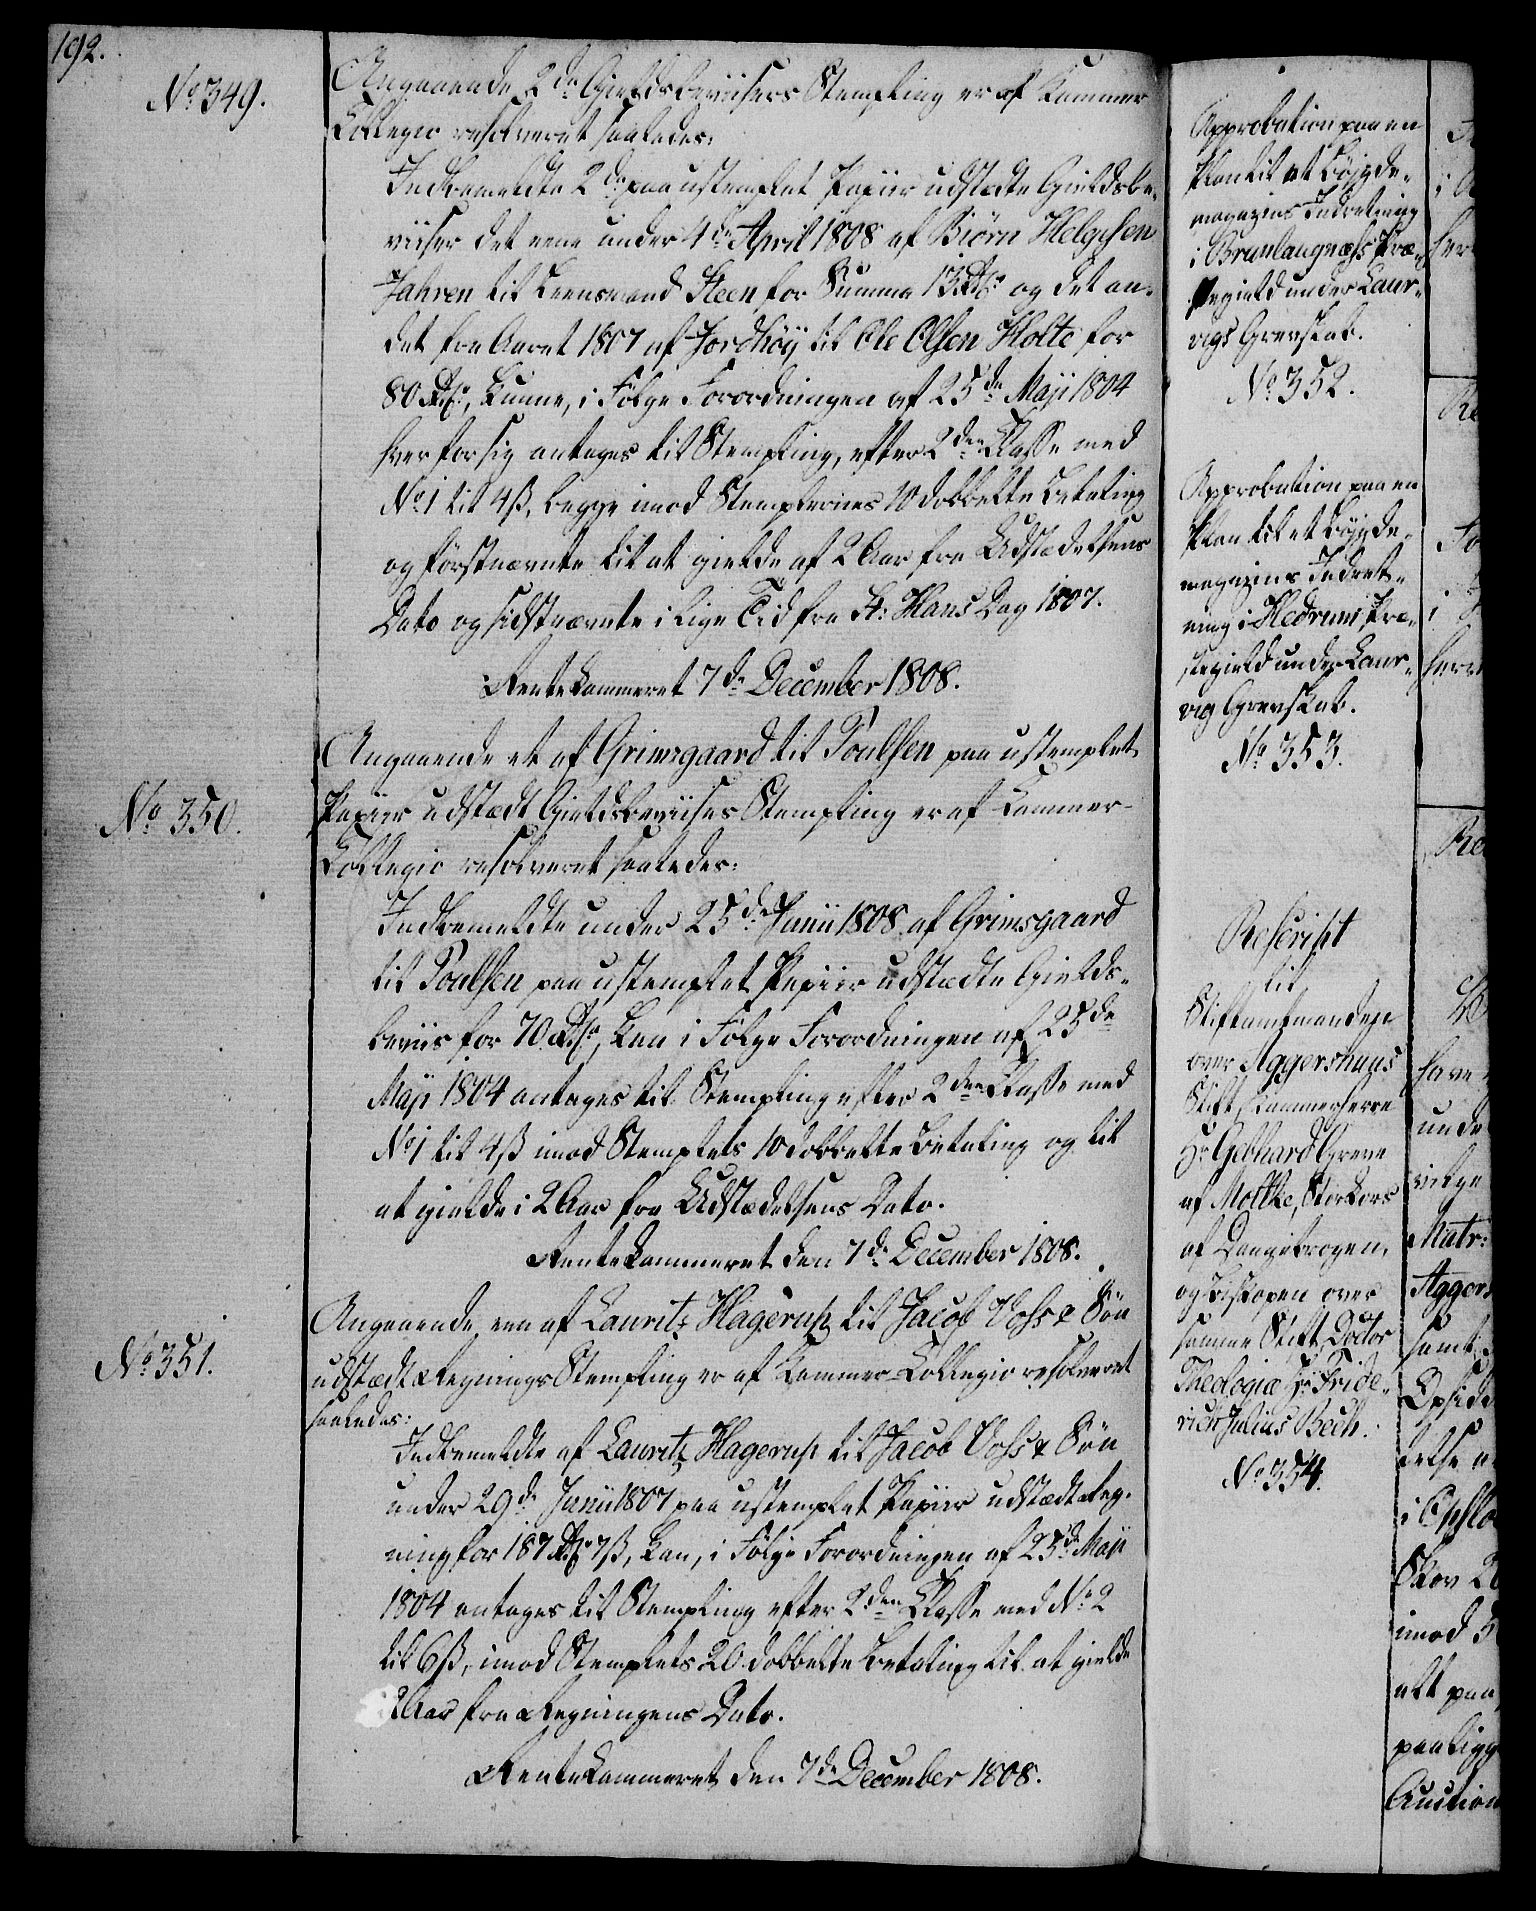 192.
No 349.
Angaaende 2de Gieldsbeviisers Stempling er af Kammer
Collegio resolveret saaledes:
Indbemeldte 2de paa ustemplet Papiir udstædte Gieldsbe-
viiser det eene under 4de April 1808 af Biörn Helgesen
Jahren til Leensmand Steen for Summa 13 Rdr og det an-
det fra Aaret 1807 af Jordhöy til Ole Olsen Holte for
80 Rdr, kunne, i Fölge Forordningen af 25de Maji 1804
hver for sig antages til Stempling, efter 2den Classe med
No 1 til 4ß, begge imod Stemplernes 10 dobbelte Betaling
og förstnævnte til at gielde af 2 Aar fra Udstædelsens
Dato og sidstnævnte i lige Tid fra St: Hans Dag 1807.
Rentekammeret 7de December 1808.
No 350.
Angaaende et af Grimsgaard til Poulsen paa ustemplet
Papiir udstædt Gieldsbeviises Stempling er af Kammer-
Collegio resolveret saaledes:
Indbemeldte under 25de Junii 1808 af Grimsgaard
til Poulsen paa ustemplet Papiir udstædte Gields-
beviis for 70 Rdr, kan i Fölge Forordningen af 25de
Maji 1804 antages til Stempling efter 2den Classe med
No 1 til 4ß imod Stemplets 10 dobbelte Betaling og til
at gielde i 2 Aar fra Udstædelsens Dato.
Rentekammeret den 7de December 1808.
No 351.
Angaaende een af Lauritz Hagerup til Jacob Vohs & Sön
udstædt Regnings Stempling er af Kammer-Collegio resolveret
saaledes:
Indbemeldte af Lauritz Hagerup til Jacob Vohs & Sön
under 29de Junii 1807 paa ustemplet Papiir udstædt Reg-
ning for 187 Rdr 7ß, kan, i Fölge Forordningen af 25de Maji
1804 antages til Stempling efter 2den Classe med No 2
til 6ß, imod Stemplets 20 dobbelte Betaling til at gielde
2 Aar fra Regningens Dato.
Rentekammeret den 7de December 1808.
Approbation paa en
Plan til et Bøigde-
magazins Indretning
i Brunlaugnæss Præ-
stegield under Laur-
vigs Grevskab.
No 352.
Approbation paa en
Plan til et Bøigde-
magazins Indret-
ning i Hedrum Præ-
stegield under Laur-
vig Grevskab.
No 353.
Rescript
til
Stiftamtmanden
over Aggershuus
Stift Kammerherre
Hr Gebhard Greve
af Moltke, Storkors
af Dannebrogen,
og Biskopen over
samme Stift, Doctor
Theologiæ Hr Fride-
rich Julius Bech.
No 354.
have
unde
vilge
Matr:
Aggers
samt
Opside
i Opslo
Skov
imod
alt paa
paaligg
Auction